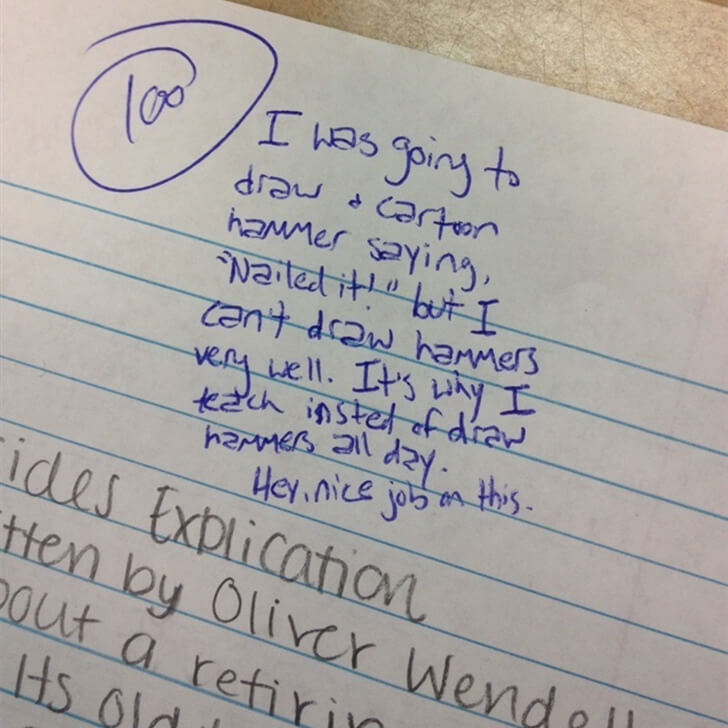 100
I was going to
draw a cartoon
hammer saying,
"Nailed it!" but I
can't draw hammers
very well. It's why I
teach insted of draw
hammers all day.
Hey, nice job on this.
ides Explication
itten by Oliver Wendell
bout a retirin
Its old